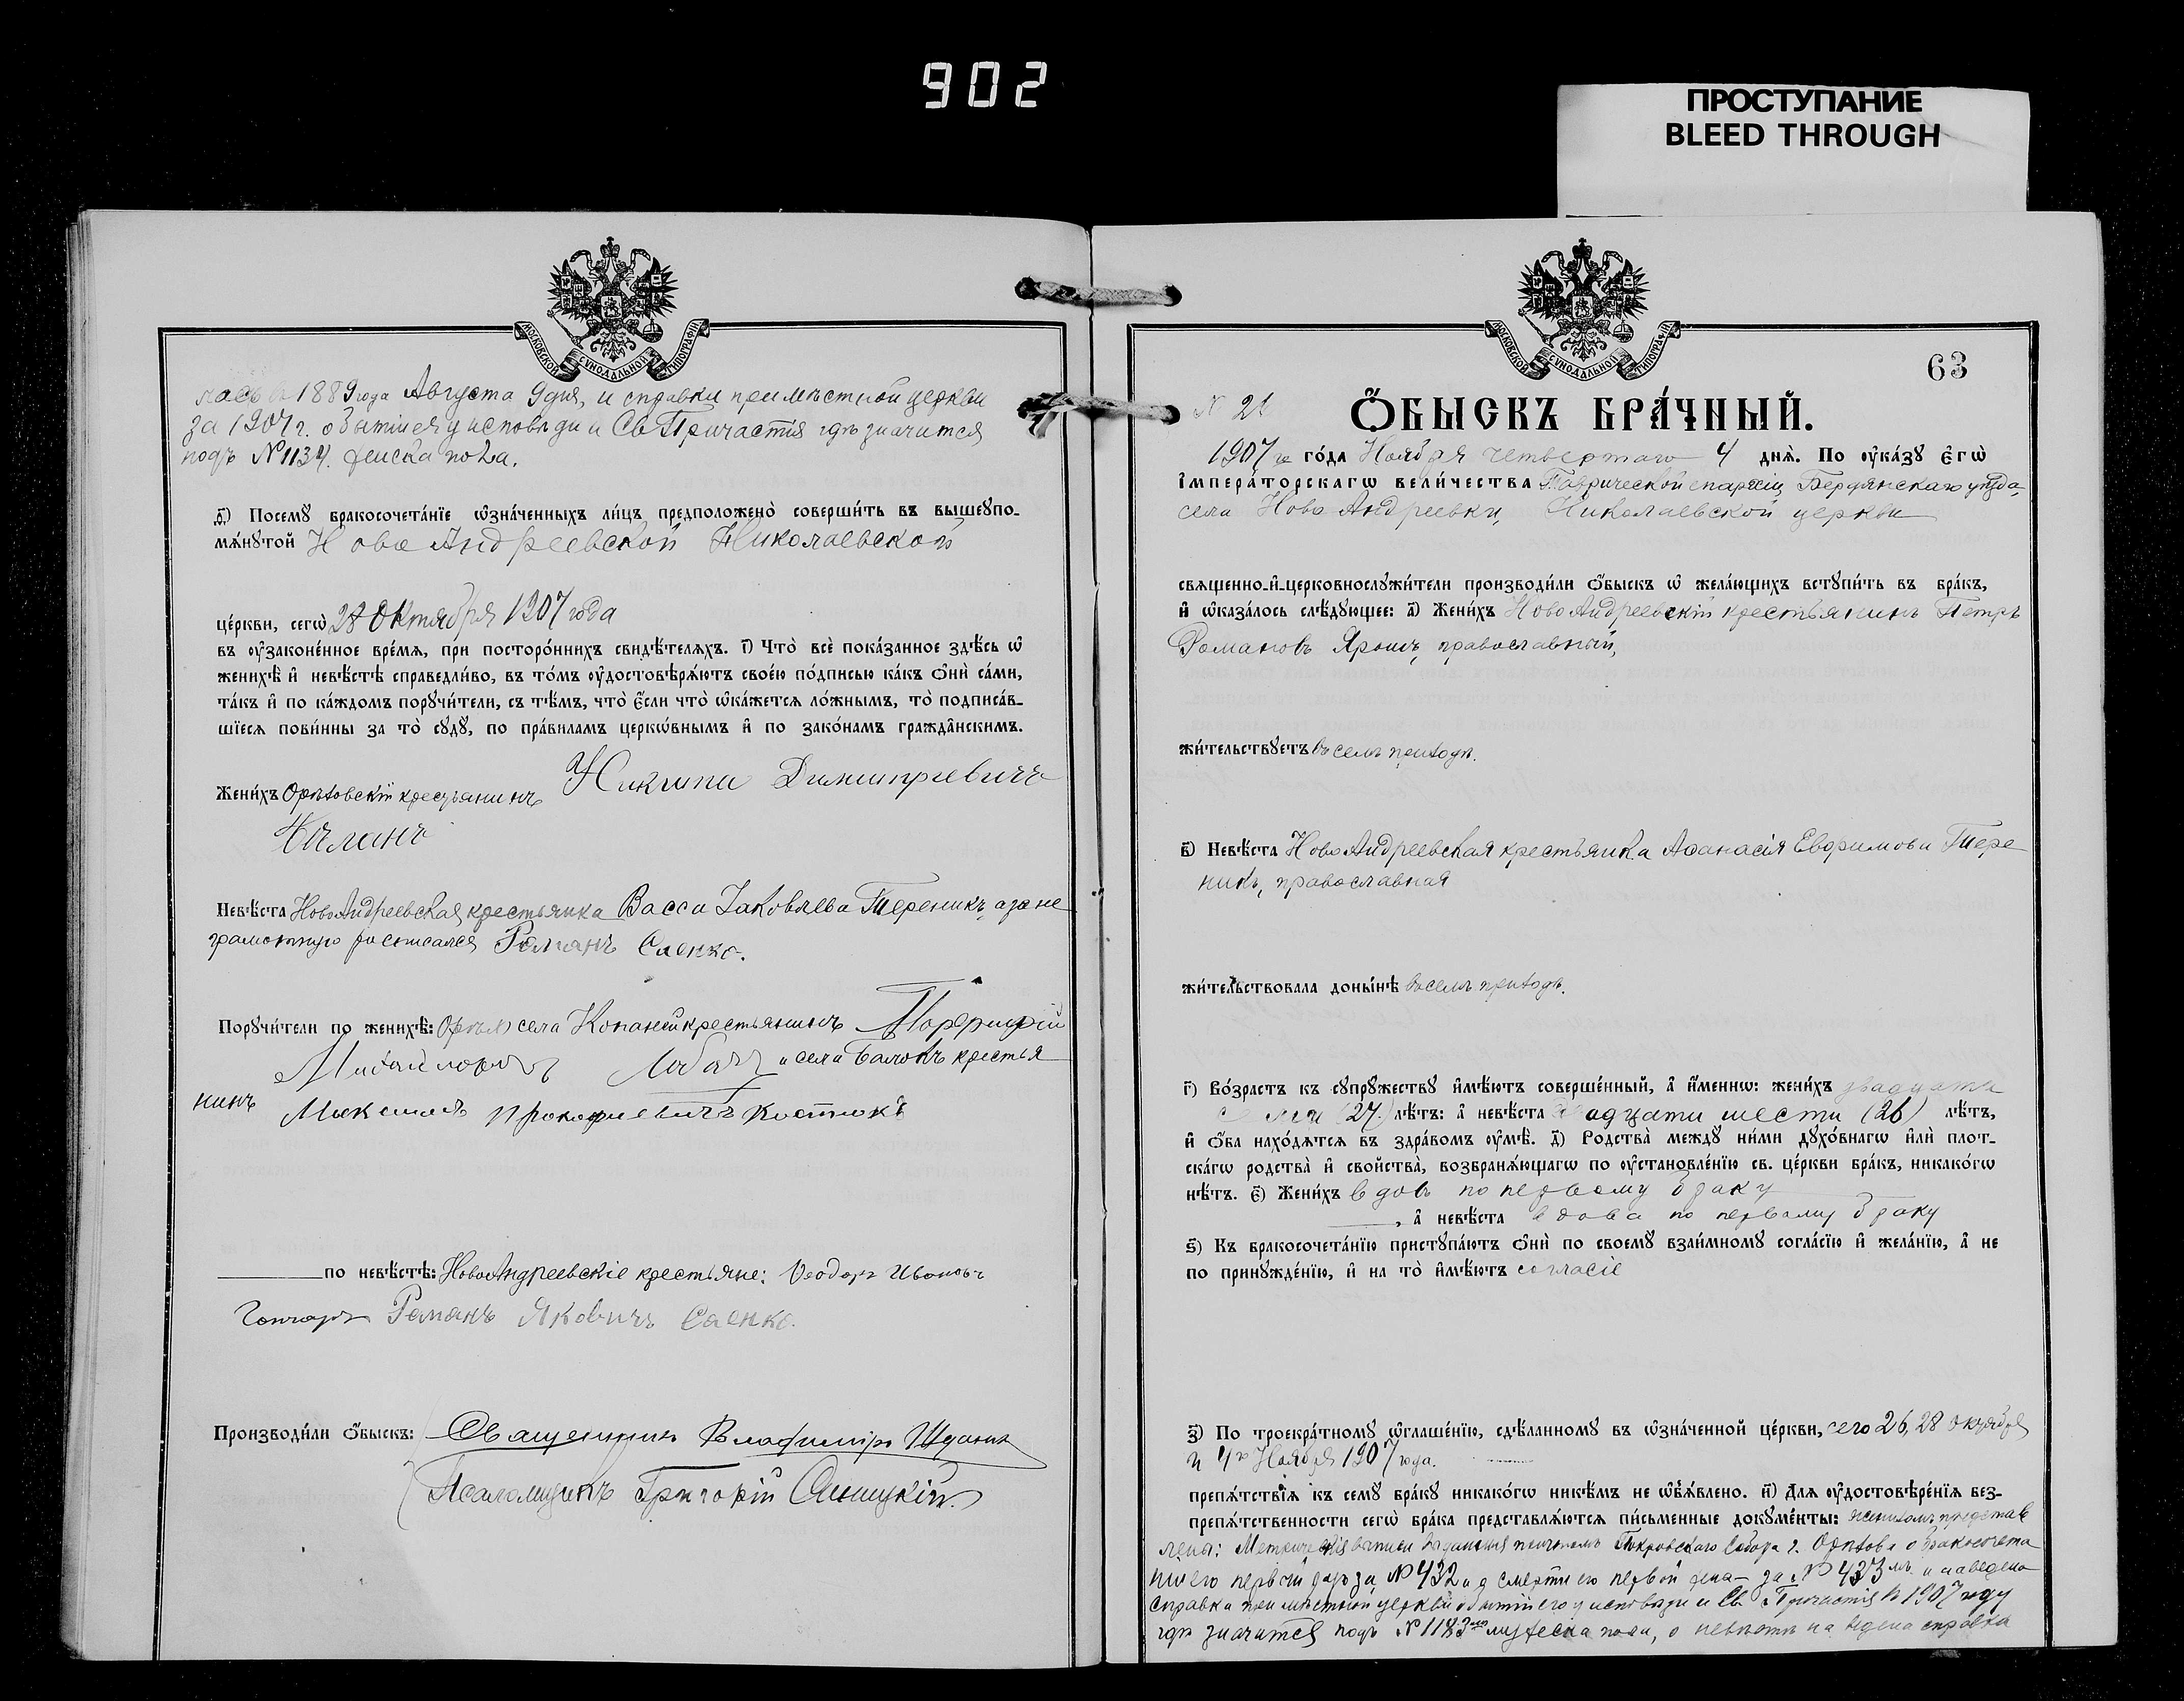 902
ПРОСТУПАНИЕ
BLEED THROUGH
МОСКОВСКОЙ СѴНОДАЛЬНОЙ ТИПОГРАФІИ
лась въ 1889 года Августа 9 дня, и справки при мѣстной церкви
за 1907 г. о бытіи ея у исповѣди и Св Причастія гдѣ значится
подъ № 1134. женска пола.
в҃) Посемꙋ̀ бракосочета́нїе ѡ҆зна́ченныхъ ли́цъ предположено̀ соверши́ть въ вышеꙋпо-
мѧ́нꙋтой Ново Андреевской Николаевской
це́ркви, сегѡ̀ 28 Октября 1907 года
въ ᲂу҆законе́нное вре́мѧ, при посторо́ннихъ свидѣ́телѧхъ. г҃і) Что̀ всѐ пока́занное здѣ́сь ѡ҆
женихѣ̀ и҆ невѣ́стѣ справедли́во, въ то́мъ ᲂу҆достовѣрѧ́ютъ свое́ю по́дписью ка́къ ѻ҆нѝ са́ми,
та́къ и҆ по ка́ждомъ порꙋчи́тели, съ тѣ́мъ, что̀ є҆́сли что̀ ѡ҆ка́жетсѧ ло́жнымъ, то̀ подписа́в-
шїесѧ пови́нны за то̀ сꙋдꙋ̀, по пра́виламъ церко́внымъ и҆ по зако́намъ гражда́нскимъ.
Жени́хъ Орѣховскій крестьянинъ Никита Димитріевичъ
Невѣ́ста Ново Андреевская крестьянка Васса Іаковлева Тереникъ, а за не
грамотную росписался Романъ Саенко.
Порꙋчи́тели по женихѣ̀: села Копаней крестьянинъ Порфирій
Михайловичъ и села Балокъ крестья
нинъ Максимъ Прокофиевичъ Костюкъ
по невѣ́стѣ: Ново Андреевскіе крестьяне: Ѳеодоръ Ивановъ
Гончаръ Романъ Яковичъ Саенко.
Производи́ли ѻ҆́быскъ: Священникъ Владиміръ
Псаломщикъ Григорій
МОСКОВСКОЙ СѴНОДАЛЬНОЙ ТИПОГРАФІИ
63
№ 21
Ѻ҆́БЫСКЪ БРА́ЧНЫЙ.
1907 го го́да Ноября четвертаго 4 днѧ̀. По ᲂу҆ка́зꙋ є҆гѡ̀
і҆мпера́торскагѡ вели́чества Таврической епархіи, Бердянскаго уѣзда,
села Ново Андреевки, Николаевской церкви
свѧщенно-и҆-церковнослꙋжи́тели производи́ли ѻ҆́быскъ ѡ҆ жела́ющихъ встꙋпи́ть въ бра́къ,
и҆ ѡ҆каза́лось слѣ́дꙋющее: а҃) Жени́хъ Ново Андреевскій крестьянинъ Петръ
Романовъ Ярошъ, православный,
жи́тельствꙋетъ въ семъ приходѣ.
в҃) Невѣ́ста Ново Андреевская крестьянка Аѳанасія Евѳимова Тере
никъ, православная
жи́тельствовала доны́нѣ въ семъ приходѣ.
г҃) Во́зрастъ къ сꙋпрꙋ́жествꙋ и҆мѣ́ютъ соверше́нный, а҆ и҆́меннѡ: жени́хъ двадцати
семи (27) лѣ́тъ: а҆ невѣ́ста двадцати шести (26) лѣ́тъ,
и҆ ѻ҆́ба нахо́дѧтсѧ въ здра́вомъ ᲂу҆мѣ̀. д҃) Родства̀ междꙋ ни́ми дꙋхо́внагѡ и҆лѝ плот-
ска́гѡ родства̀ и҆ сво́йства, возбранѧ́ющагѡ по ᲂу҆становле́нїю св. це́ркви бра́къ, никако́гѡ
нѣ́тъ. є҃) Жени́хъ вдовъ по первому браку
, а҆ невѣ́ста вдова по первому браку
ѕ҃) Къ бракосочета́нїю пристꙋпа́ютъ ѻ҆нѝ по своемꙋ̀ взаи́мномꙋ согла́сїю и҆ жела́нїю, а҆ не
по принꙋжде́нїю, и҆ на то̀ и҆мѣ́ютъ согласіе
з҃) По троекра́тномꙋ ѡ҆глаше́нїю, сдѣ́ланномꙋ въ ѡ҆зна́ченной це́ркви, сего 26, 28 октября
и 4 го Ноября 1907 года.
препѧ́тствїѧ къ семꙋ̀ бра́кꙋ никако́гѡ никѣ́мъ не ѡ҆б̾ѧ́влено. и҃) Длѧ ᲂу҆достовѣре́нїѧ без-
препѧ́тственности сегѡ̀ бра́ка представлѧ́ютсѧ пи́сьменные докꙋме́нты: женихомъ представ
лены: Метрическія выписи выданныя причтомъ Покровскаго Собора г. Орѣхова о бракосочета
ніи его первый разъ за № 432 и о смерти его первой жена за № 433 мъ и наведена
справка при мѣстной церкви о бытіи его у исповѣди и Св. Причастія въ 1907 году
гдѣ значится подъ № 1183 мъ мужеска пола, о невѣстѣ наведена справка